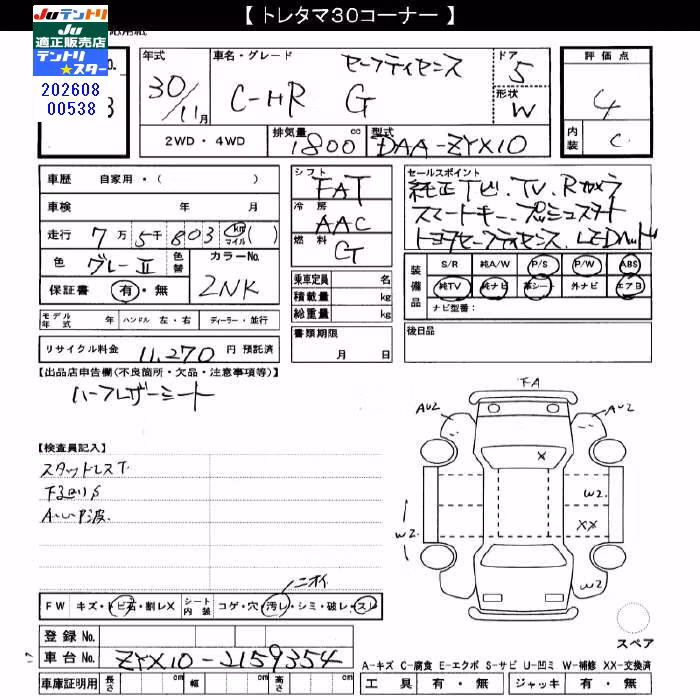 【 トレタマ30コーナー 】
JUテントリ
JU
適正販売店
テントリ
★スター
202608
00538
年式 車名・グレード ドア 評価点
セーフティセンス 5
30/11月 C-HR G 形状 W 4
内装 C
2WD・4WD 排気量 1800 cc 型式 DAA-ZYX10
車歴 自家用・( )
車検 年 月
走行 7万 5千 803 km マイル ( )
色 グレーⅡ 色替 カラーNo.
保証書 有・無 2NK
シフト FAT
冷房 AAC
燃料 G
乗車定員 名
積載量 kg
総重量 kg
セールスポイント
純正ナビ、TV、Rカメラ
スマートキー、プッシュスタート
トヨタセーフティセンス、LEDヘッド
装備品 S/R 純A/W P/S P/W ABS
純TV 純ナビ 革シート 外ナビ エアB
ナビ型番:
モデル年式 年 ハンドル 左・右 ディーラー・並行
書類期限 月 日
後日品
リサイクル料金 11,270 円 預託済
【出品店申告欄(不良箇所・欠品・注意事項等)】
ハーフレザーシート
【検査員記入】
スタッドレスT
下回りS
FA
AU2 AU2
X
W2
XX
W2
W2
ニオイ
FW キズ・トビ石・割レX シート内装 コゲ・穴・汚レ・シミ・破レ・スレ
登録 No.
車台 No. ZYX10-2159354
スペア
A-キズ C-腐食 E-エクボ S-サビ U-凹ミ W-補修 XX-交換済
車庫証明用 長さ cm 幅 cm 高さ cm 工具 有・無 ジャッキ 有・無